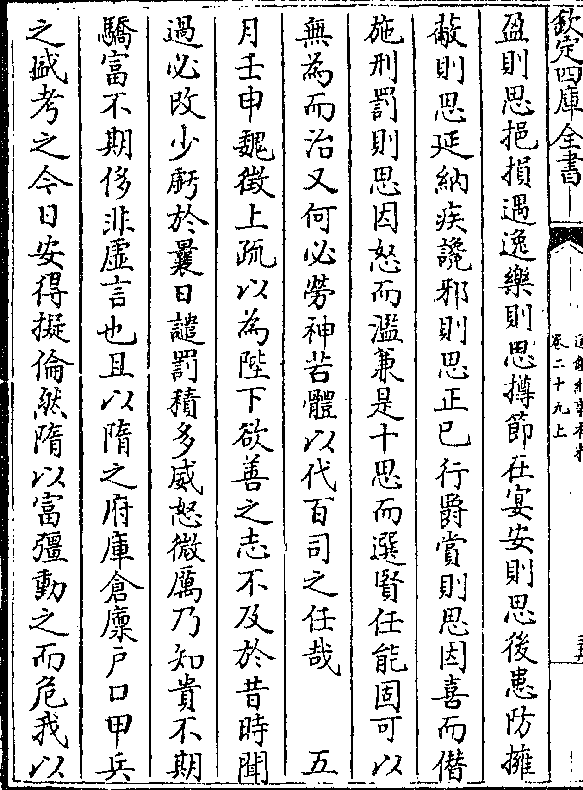 欽定四庫全書
卷二十九上
盈則思挹損遇逸樂則思撙節在宴安則思後患防擁
蔽則思延納疾讒邪則思正己行爵賞則思因喜而僭
施刑罰則思因怒而濫兼是十思而選賢任能固可以
無為而治又何必勞神苦體以代百司之任哉　五
月壬申魏徵上疏以為陛下欲善之志不及於昔時聞
過必改少虧於曩日譴罰積多威怒微厲乃知貴不期
驕富不期侈非虛言也且以隋之府庫倉廪戶口甲兵
之盛考之今日安得擬倫然隋以富彊動之而危我以